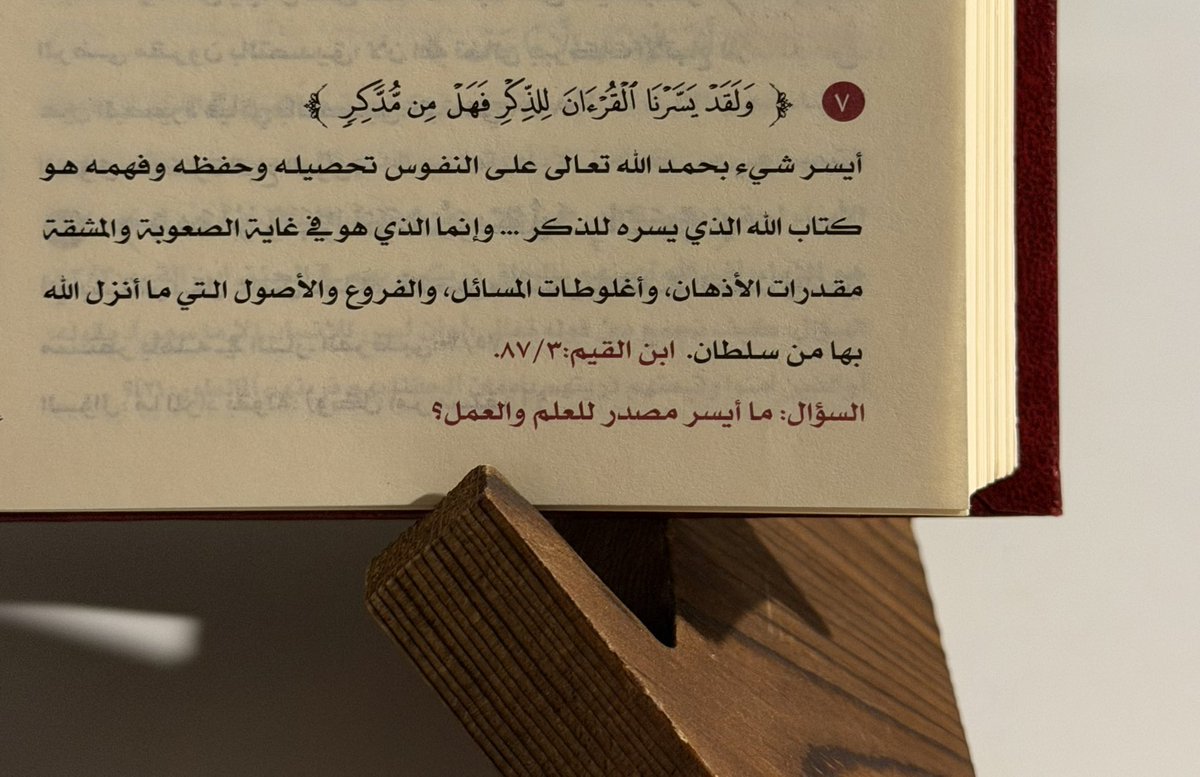 ٧ ﴿ وَلَقَدْ يَسَّرْنَا ٱلْقُرْءَانَ لِلذِّكْرِ فَهَلْ مِن مُّدَّكِرٍ ﴾
أيسر شيء بحمد الله تعالى على النفوس تحصيله وحفظه وفهمه هو
كتاب الله الذي يسره للذكر ... وإنما الذي هو في غاية الصعوبة والمشقة
مقدرات الأذهان، وأغلوطات المسائل، والفروع والأصول التي ما أنزل الله
بها من سلطان. ابن القيم:٨٧/٣.
السؤال: ما أيسر مصدر للعلم والعمل؟